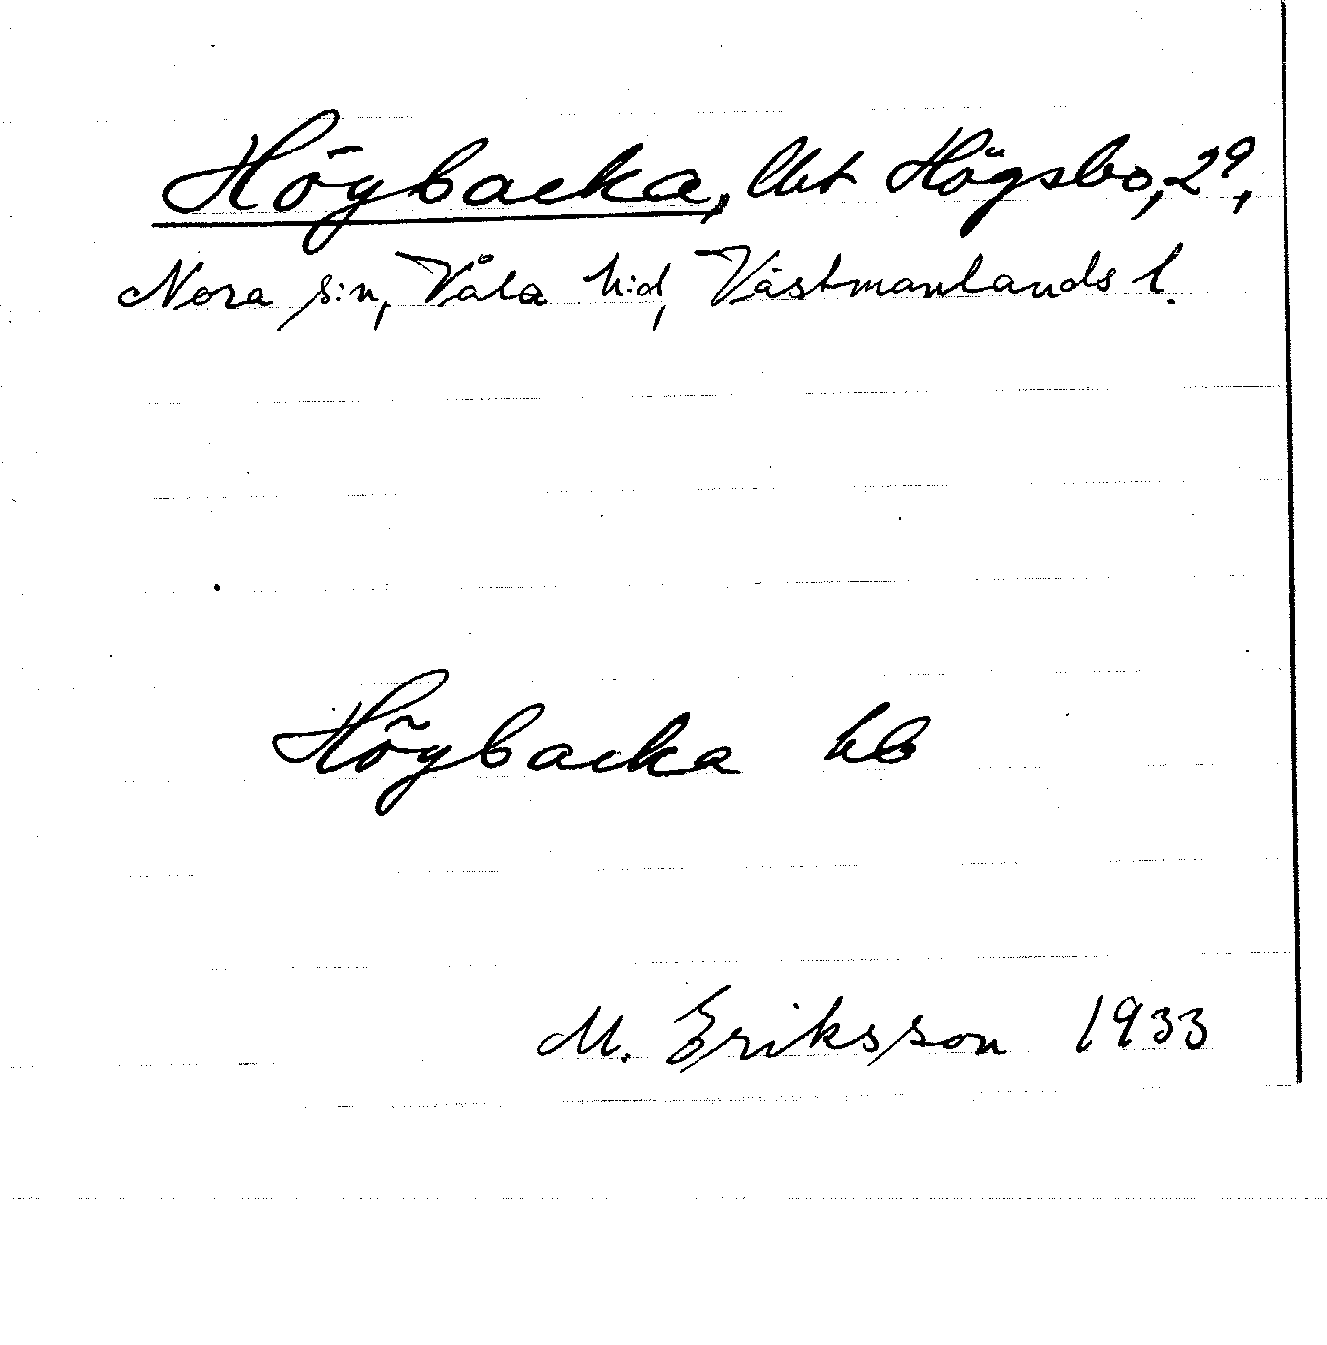 Högbacka, lht Högsbo, 2?,
Nora s:n, Våla h:d, Västmanlands l.
Högbacka hb
M. Eriksson 1933